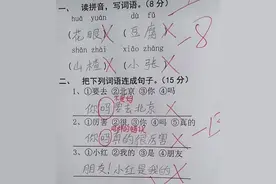 一、读拼音，写词语。(8分)
huā yuán dòu fǔ
(花眼) (豆腐) -8
shān zhài xiǎo zhāng
(山楂) (小张)
二、把下列词语连成句子。(15分)
1、①要去 ②北京 ③你 ④吗
你吗要去北京
2、①厉害 ②很 ③你 ④吗 ⑤真的
你吗真的很厉害
3、①小红 ②我的 ③是 ④朋友
朋友！小红是我的